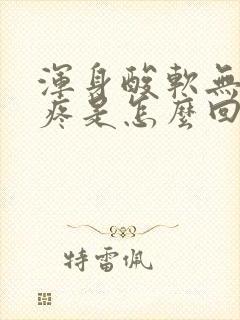 渾身酸軟無
疼是怎麼回
特雷佩